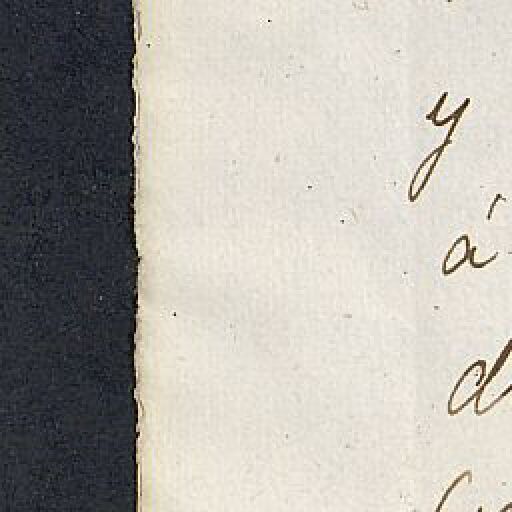 y
á
d